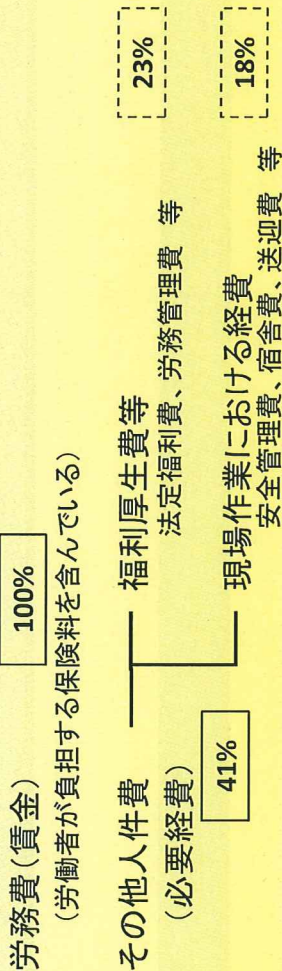 労務費(賃金)
100%
(労働者が負担する保険料を含んでいる)
その他人件費
(必要経費)
41%
福利厚生費等
23%
法定福利費、労務管理費 等
現場作業における経費
18%
安全管理費、宿舎費、送迎費 等